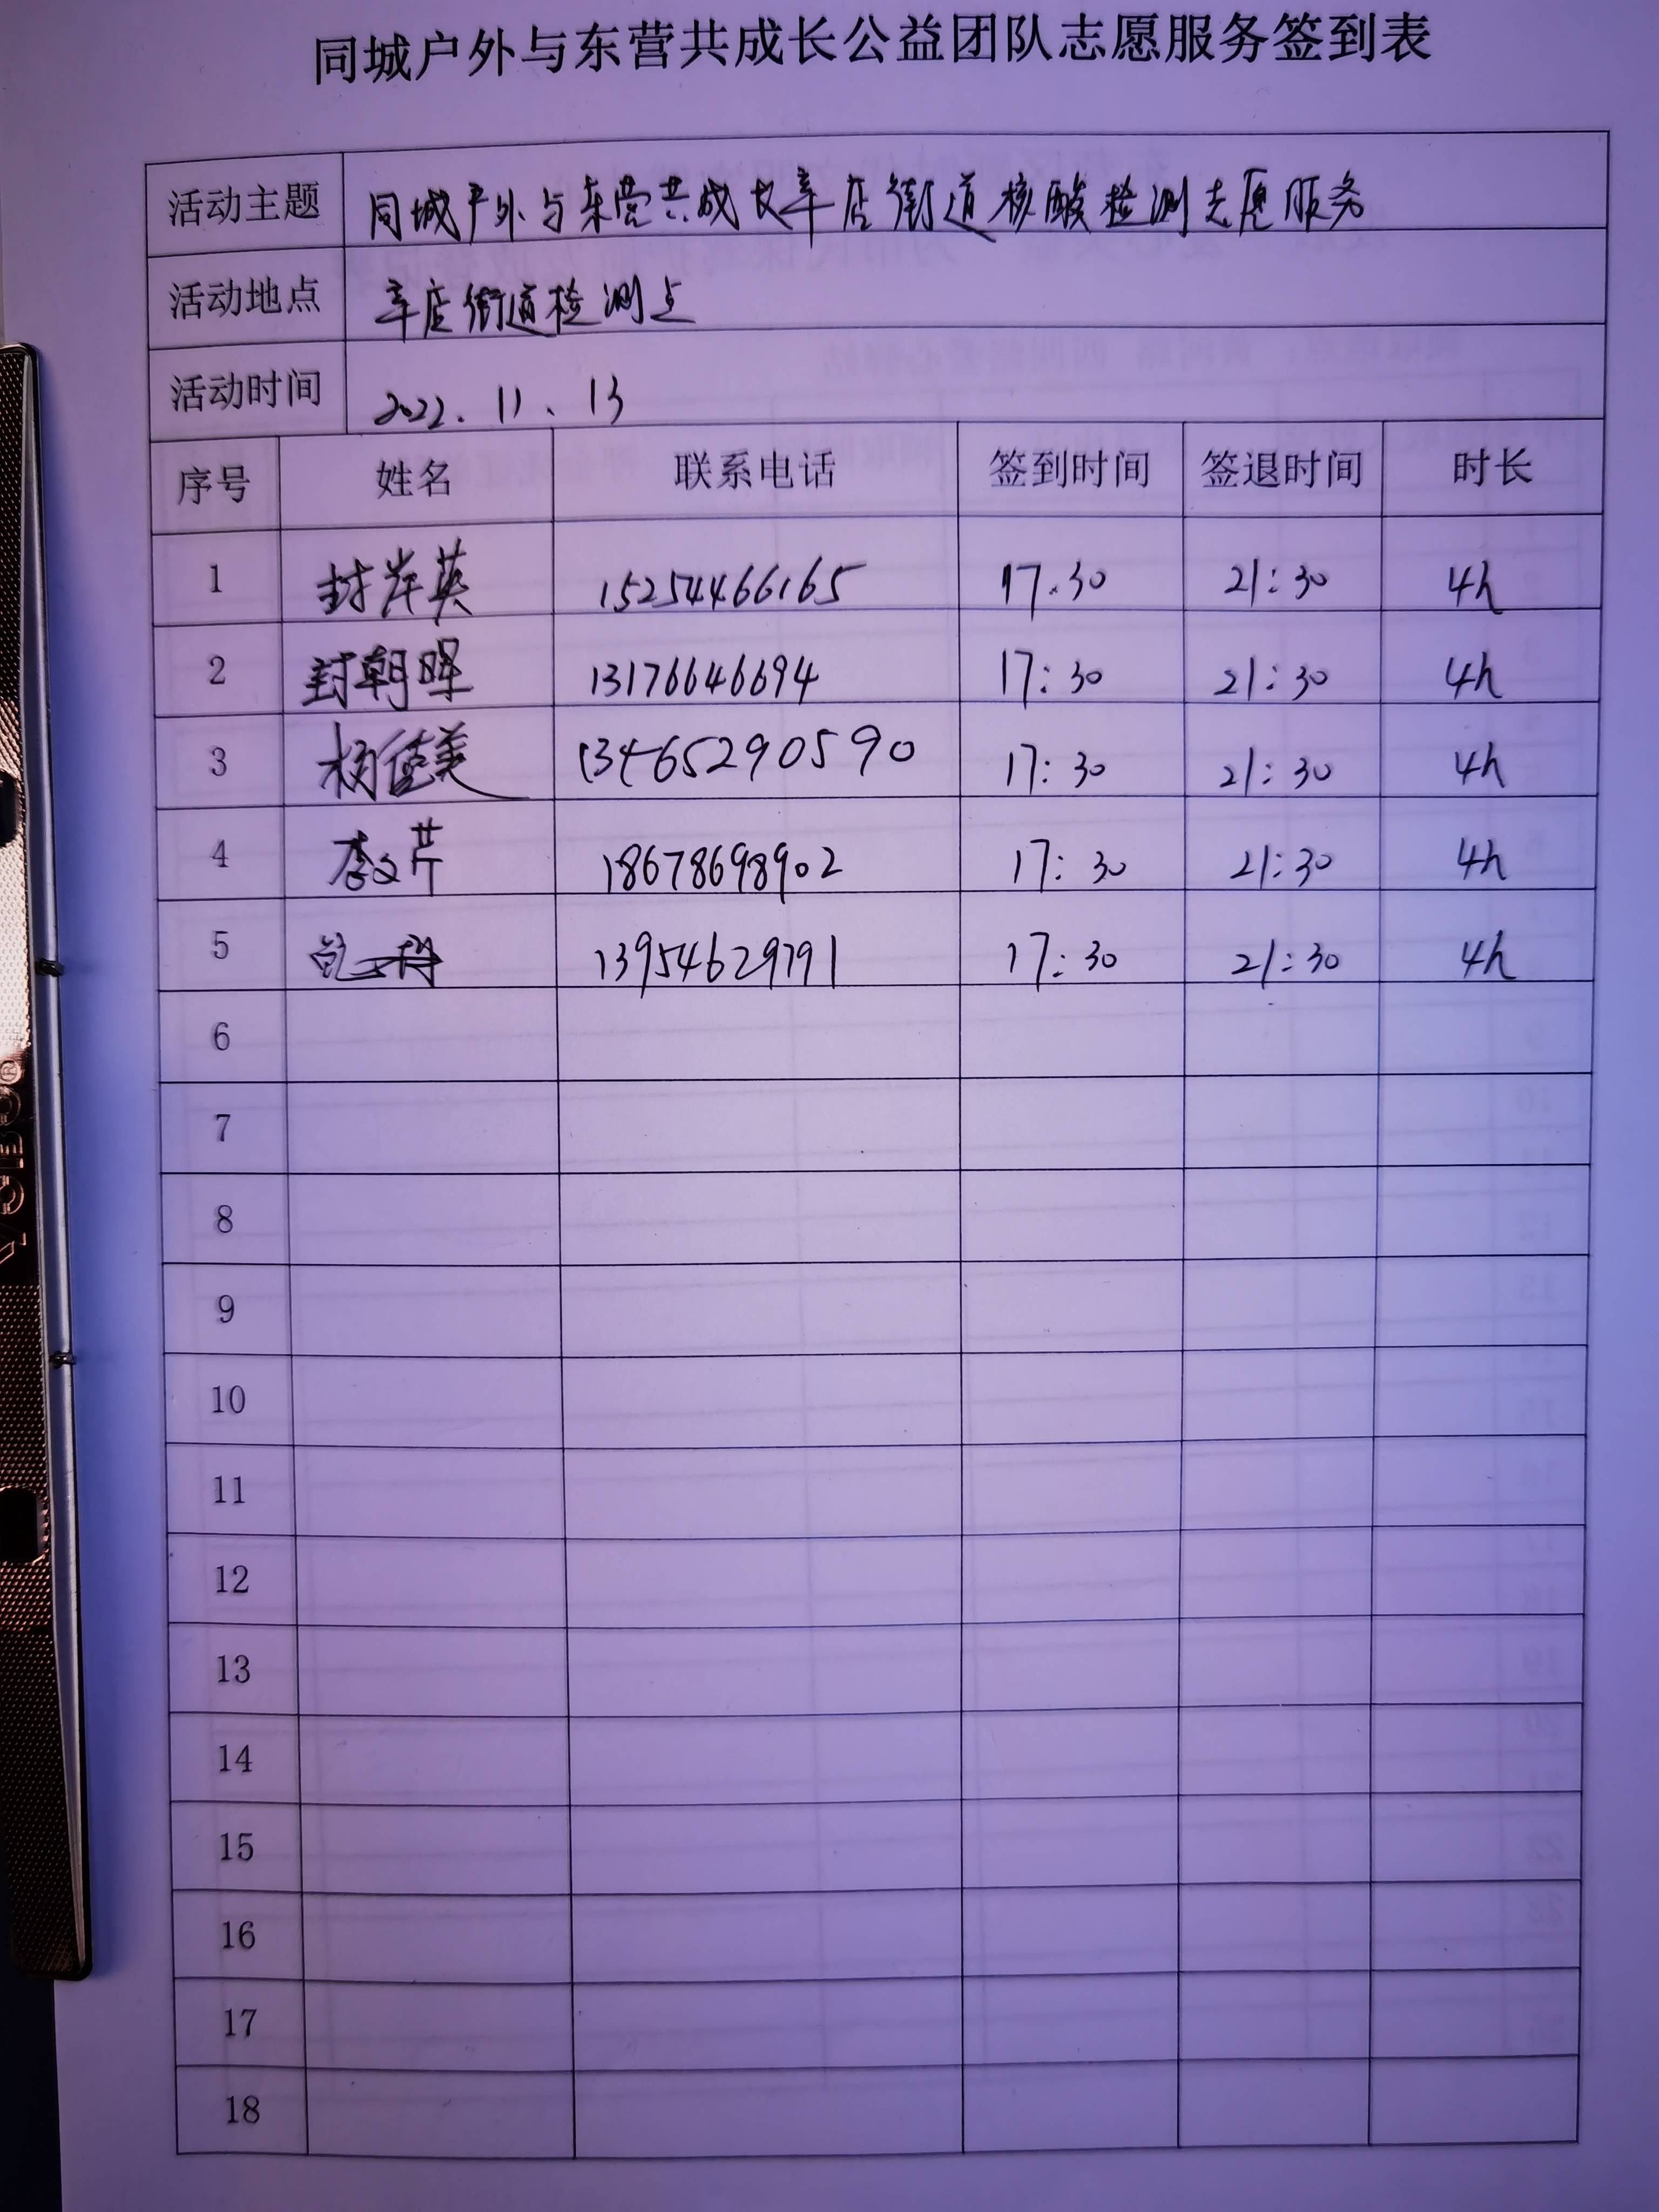 同城户外与东营共成长公益团队志愿服务签到表
活动主题 同城户外与东营共成长辛店街道核酸检测志愿服务
活动地点 辛店街道检测点
活动时间 2022.11、13
序号 姓名 联系电话 签到时间 签退时间 时长
1 封岸英 15254466165 17.30 21:30 4h
2 封朝晖 13176646694 17:30 21:30 4h
3 杨德美 13465290590 17:30 21:30 4h
4 李文芹 18678698902 17:30 21:30 4h
5 13954629791 17:30 21:30 4h
6
7
8
9
10
11
12
13
14
15
16
17
18